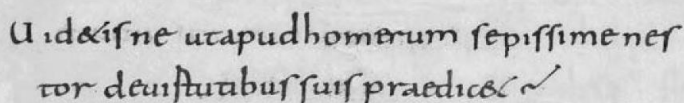 Uid&isne utapudhomerum sepissime nes
tor deuirtutibus suis praedic&